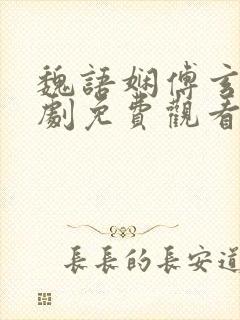 魏語嫻傅玄
劇免費觀看
長長的長安道